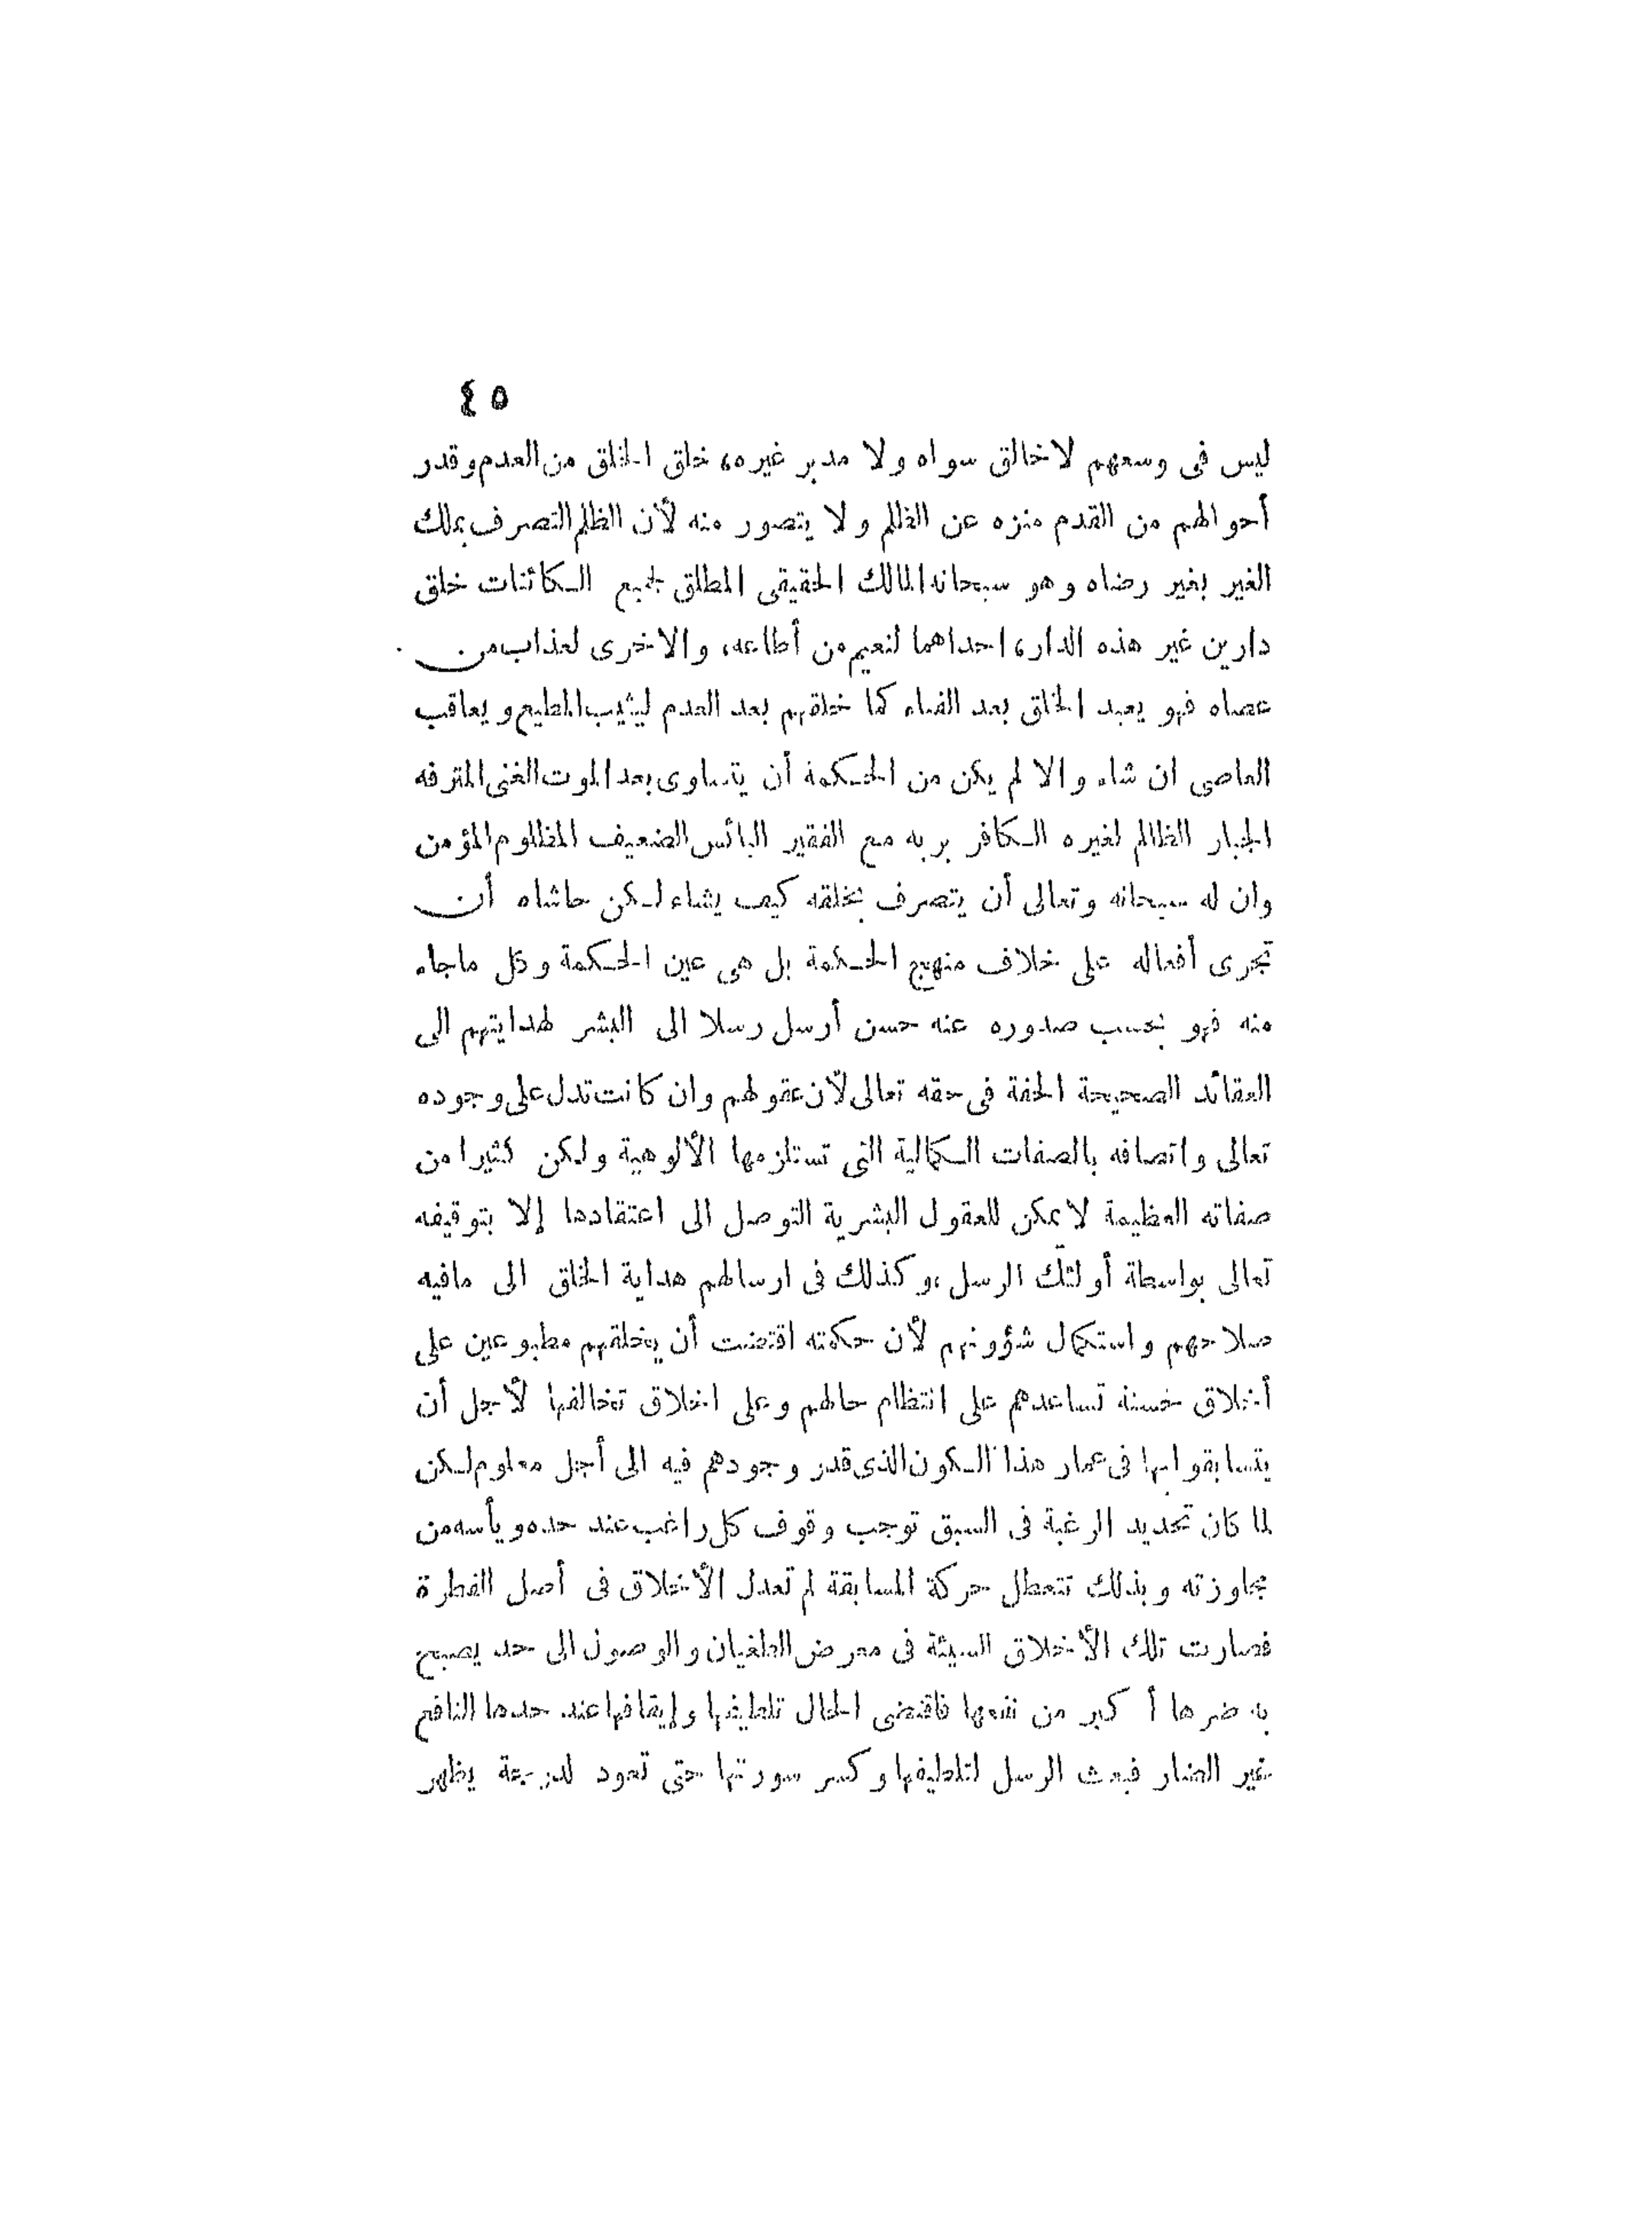 ٤٥
ليس فى وسعهم لا خالق سواه ولا مدبر غيره، خلق الخلق من العدم وقدر
أحوالهم من القدم منزه عن الظلم ولا يتصور منه لأن الظلم التصرف بملك
الغير بغير رضاه وهو سبحانه المالك الحقيقى المطلق لجميع الكائنات خلق
دارين غير هذه الدار، احداهما لنعيم من أطاعه، والاخرى لعذاب من
عصاه فهو يعيد الخلق بعد الفناء كما خلقهم بعد العدم ليثيب المطيع ويعاقب
العاصى ان شاء والا لم يكن من الحكمة أن يتساوى بعد الموت الغنى المترفه
الجبار الظالم لغيره الكافر بربه مع الفقير البائس الضعيف المظلوم المؤمن
وان له سبحانه وتعالى أن يتصرف بخلقه كيف يشاء لكن حاشاه أن
تجرى أفعاله على خلاف منهج الحكمة بل هى عين الحكمة وكل ماجاء
منه فهو بحسب صدوره عنه حسن أرسل رسلا الى البشر لهدايتهم الى
العقائد الصحيحة الحقة فى حقه تعالى لأن عقولهم وان كانت تدل على وجوده
تعالى واتصافه بالصفات الكمالية التى تستلزمها الألوهية ولكن كثيرا من
صفاته العظيمة لا يمكن للعقول البشرية التوصل الى اعتقادها إلا بتوقيفه
تعالى بواسطة أولئك الرسل، وكذلك فى ارسالهم هداية الخلق الى مافيه
صلاحهم واستكمال شؤونهم لأن حكمته اقتضت أن يخلقهم مطبوعين على
أخلاق حسنة تساعدهم على انتظام حالهم وعلى اخلاق تخالفها لأجل أن
يتسابقوا بها فى عمار هذا الكون الذى قدر وجودهم فيه الى أجل معلوم لكن
لما كان تحديد الرغبة فى السبق توجب وقوف كل راغب عند حده ويأسه من
مجاوزته وبذلك تتعطل حركة المسابقة لم تعدل الأخلاق فى أصل الفطرة
فصارت تلك الأخلاق السيئة فى معرض الطغيان والوصول الى حد يصبح
به ضرها أكبر من نفعها فاقتضى الحال تلطيفها وإيقافها عند حدها النافع
غير الضار فبعث الرسل لتلطيفها وكسر سورتها حتى تعود لدرجة يظهر